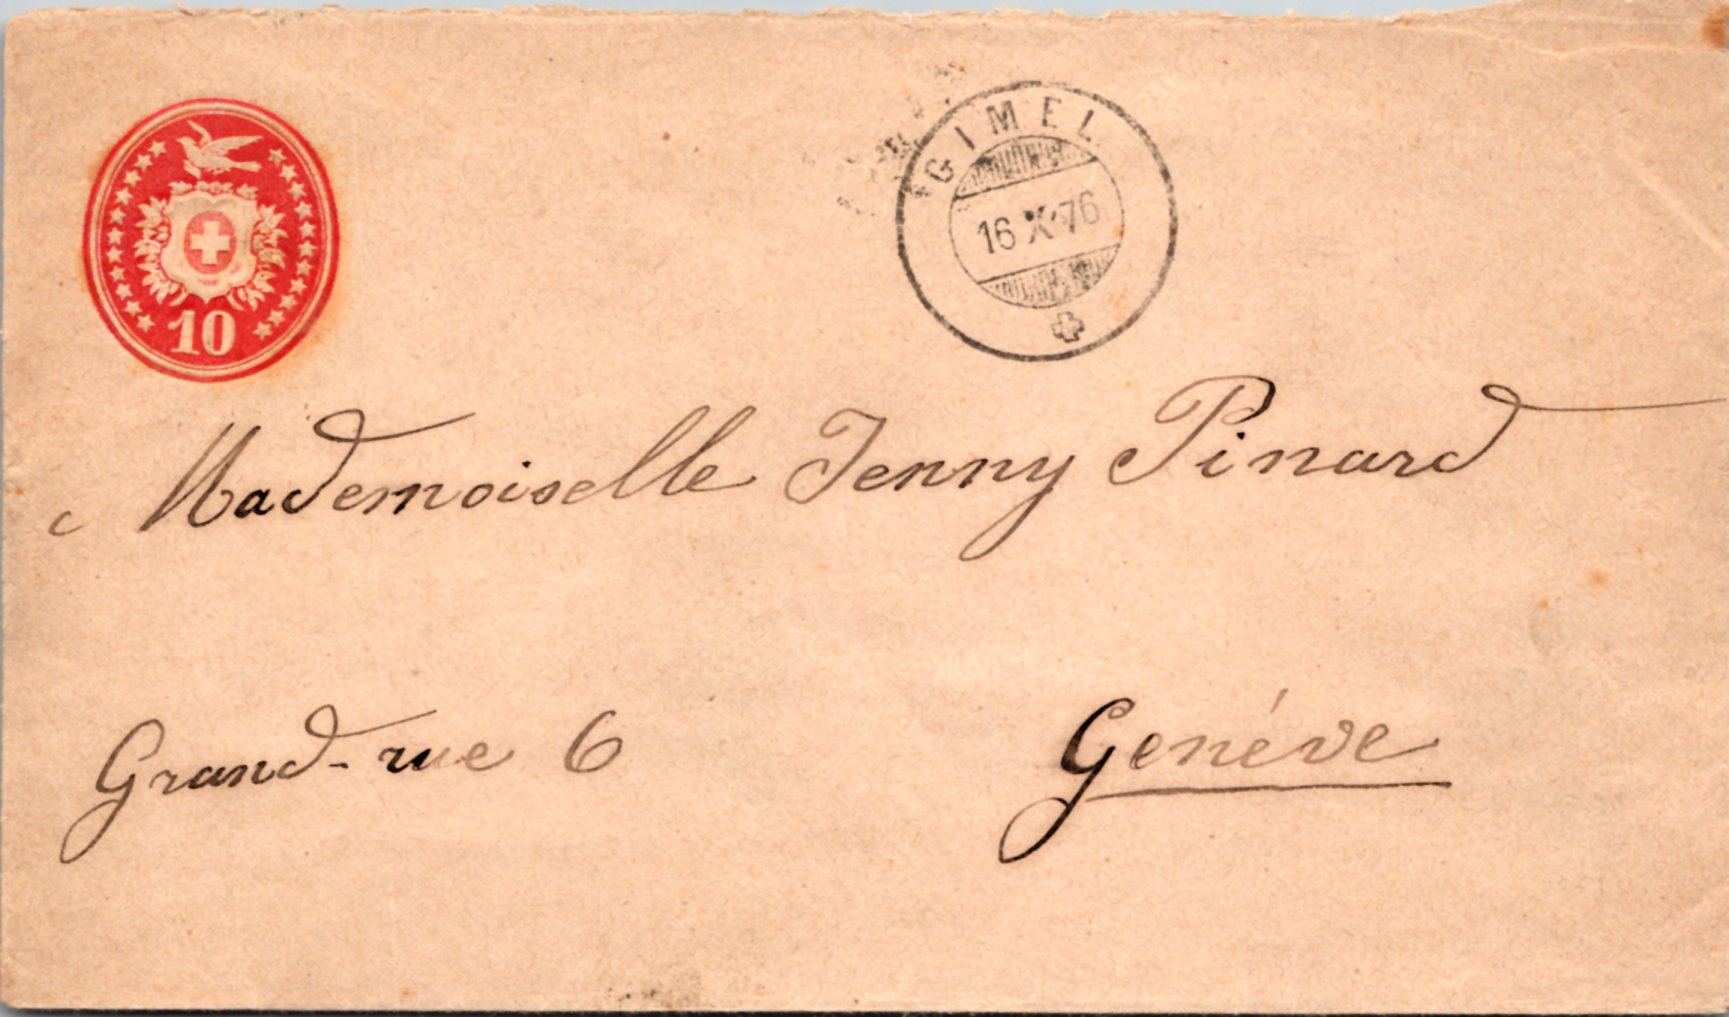 10
GIMEL
16 X 76
Mademoiselle Jenny Pinard
Grand-rue 6
Genéve